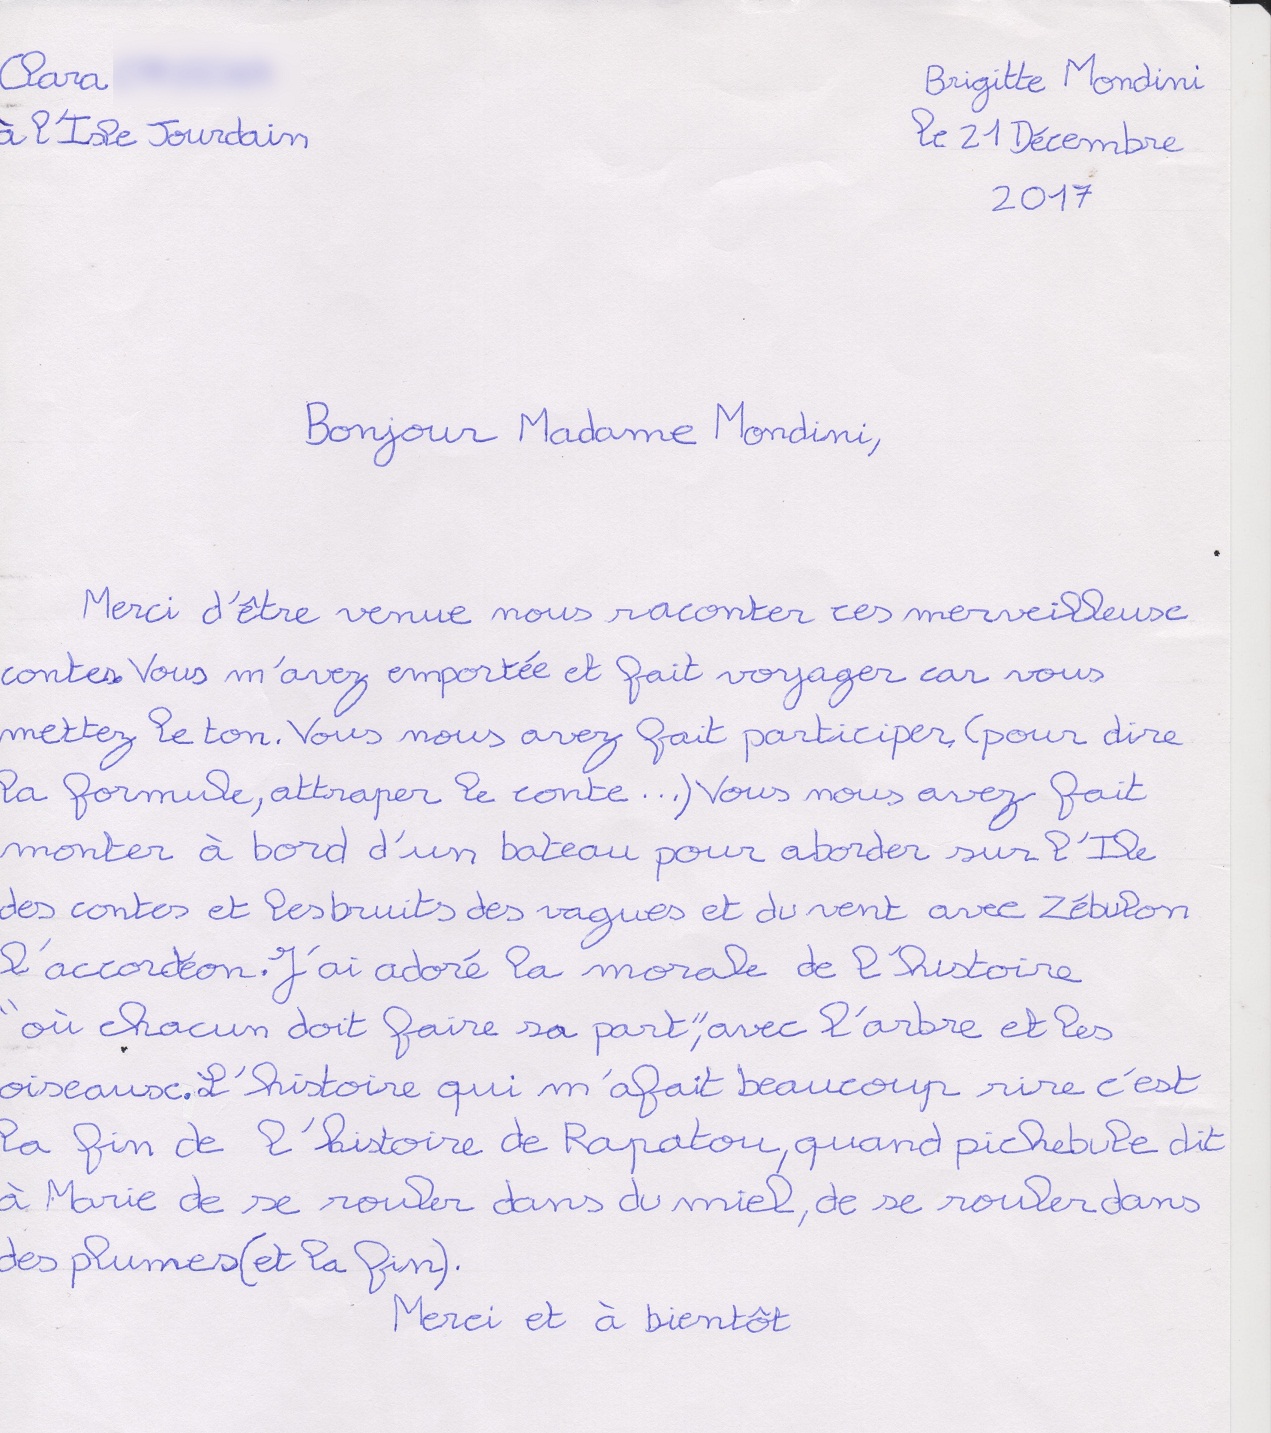 Clara
à l'Isle Jourdain
Brigitte Mondini
le 21 Décembre
2017
Bonjour Madame Mondini,
Merci d'être venue nous raconter ces merveilleux
contes. Vous m'avez emportée et fait voyager car vous
mettez le ton. Vous nous avez fait participer, (pour dire
la formule, attraper le conte ...) Vous nous avez fait
monter à bord d'un bateau pour aborder sur l'Ile
des contes et les bruits des vagues et du vent avec Zébulon
l'accordéon. J'ai adoré la morale de l'histoire
"où chacun doit faire sa part", avec l'arbre et les
oiseaux. L'histoire qui m'a fait beaucoup rire c'est
la fin de l'histoire de Rapatou, quand pichebule dit
à Marie de se rouler dans du miel, de se rouler dans
des plumes (et la fin).
Merci et à bientôt